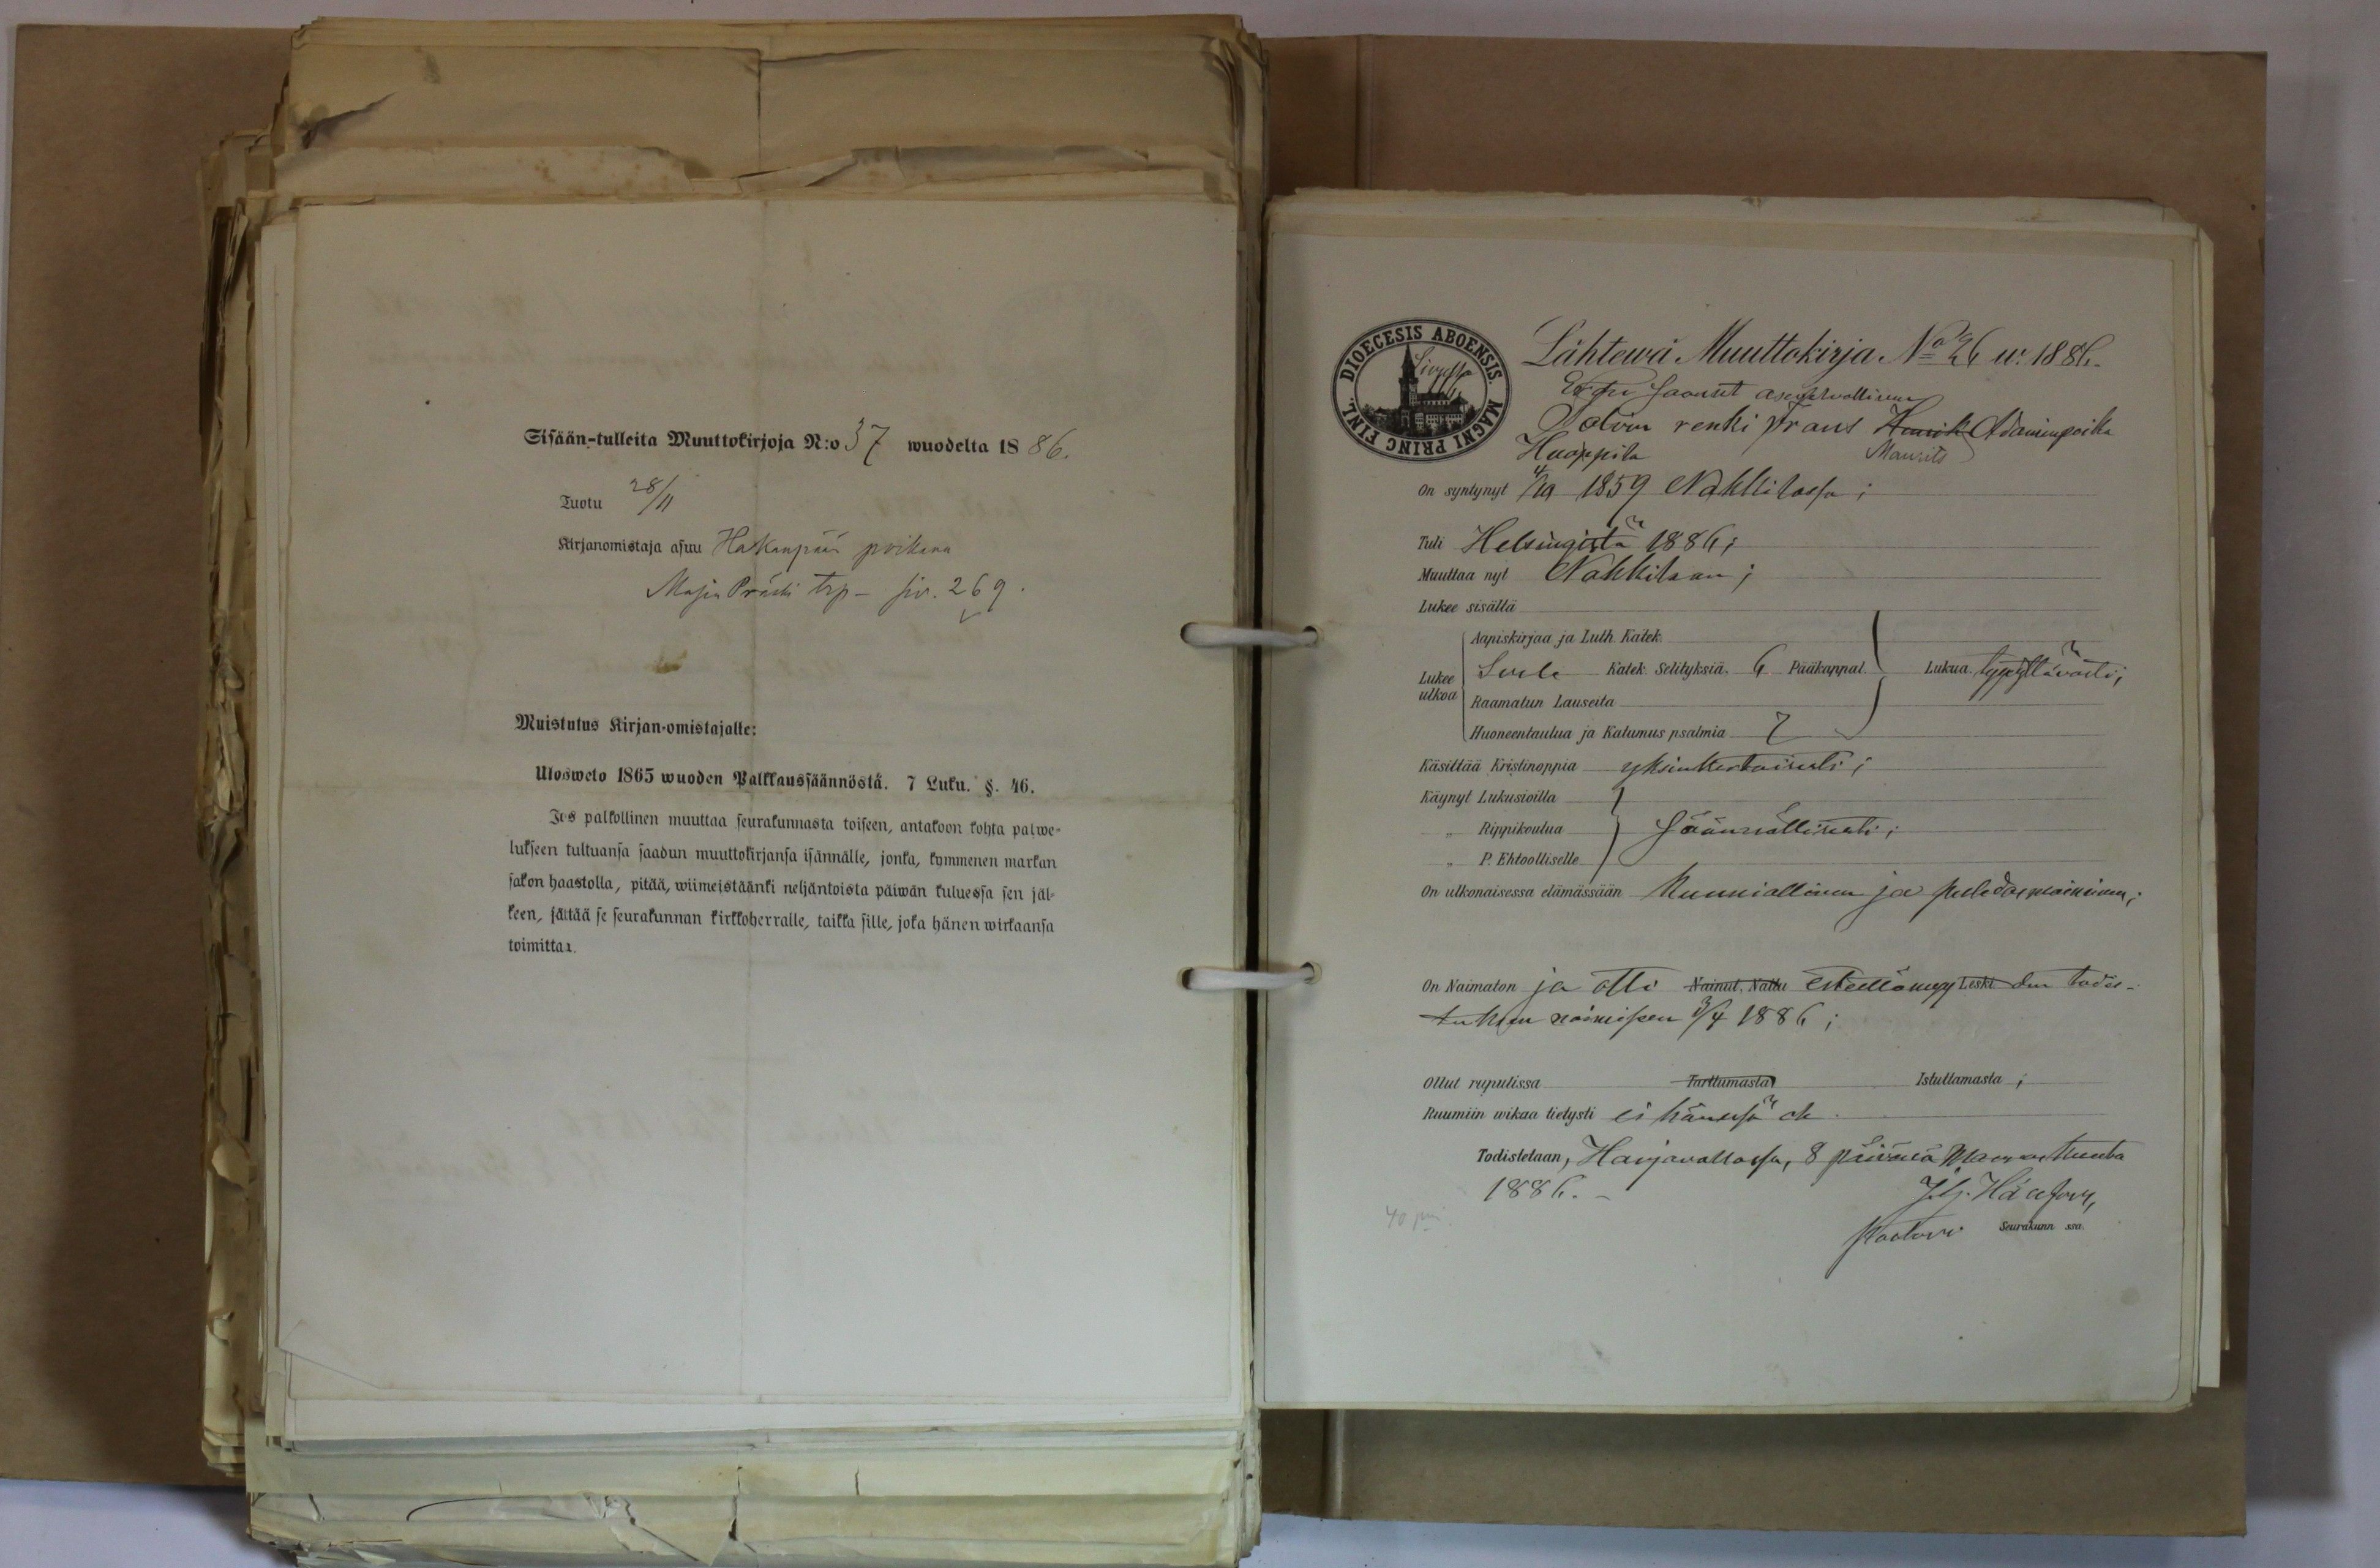 Sisään-tulleita Muuttokirjoja N:o 37 wuodelta 1886.
Tuotu 28/11
Kirjanomistaja asuu Hakanpään poikana
Maja Präski trp - siv. 269.
Muistutus Kirjan-omistajalle:
Ulosweto 1865 wuoden Palkkaussäännöstä. 7 Luku. §. 46.
Jos palkollinen muuttaa seurakunnasta toiseen, antakoon kohta palwe-
lukseen tultuansa saadun muuttokirjansa isännälle, jonka, kymmenen markan
sakon haastolla, pitää, wiimeistäänki neljäntoista päiwän kuluessa sen jäl-
keen, jättää se seurakunnan kirkkoherralle, taikka sille, joka hänen wirkaansa
toimittaa.
DIOECESIS ABOENSIS. MAGNI PRINC FINL.
Lähtewä Muuttokirja No 26 w. 1886.
Ei ole saanut asewelwollisuu
renki Frans Henrik Adaminpoika
Huoppila Maurits
On syntynyt 4/10 1859 Nakkilassa;
Tuli Helsingistä 1886;
Muuttaa nyt Nakkilaan;
Lukee sisältä
Lukee ulkoa
Aapiskirjaa ja Luth. Katek.
Katek. Selityksiä 6 Pääkappal. Lukua tyydyttävästi;
Raamatun Lauseita
Huoneentaulua ja Katumus psalmia 7
Käsittää Kristinoppia yksinkertaisesti;
Käynyt Lukusioilla
„ Rippikoulua säännöllisesti;
„ P. Ehtoolliselle
On ulkonaisessa elämässään kunniallinen ja puhdasmaininen;
On Naimaton ja otti Nainut, Nattu esteettömyy Leski den todis-
tuksen naimiseen 3/4 1886;
Ollut rupulissa Tarttumasta Istuttamasta;
Ruumiin wikaa tietysti ei hänessä ole.
Todistetaan, Harjavallassa, 8 päivänä Marraskuuta
1886.
40 pni
Pastori Seurakunn ssa.